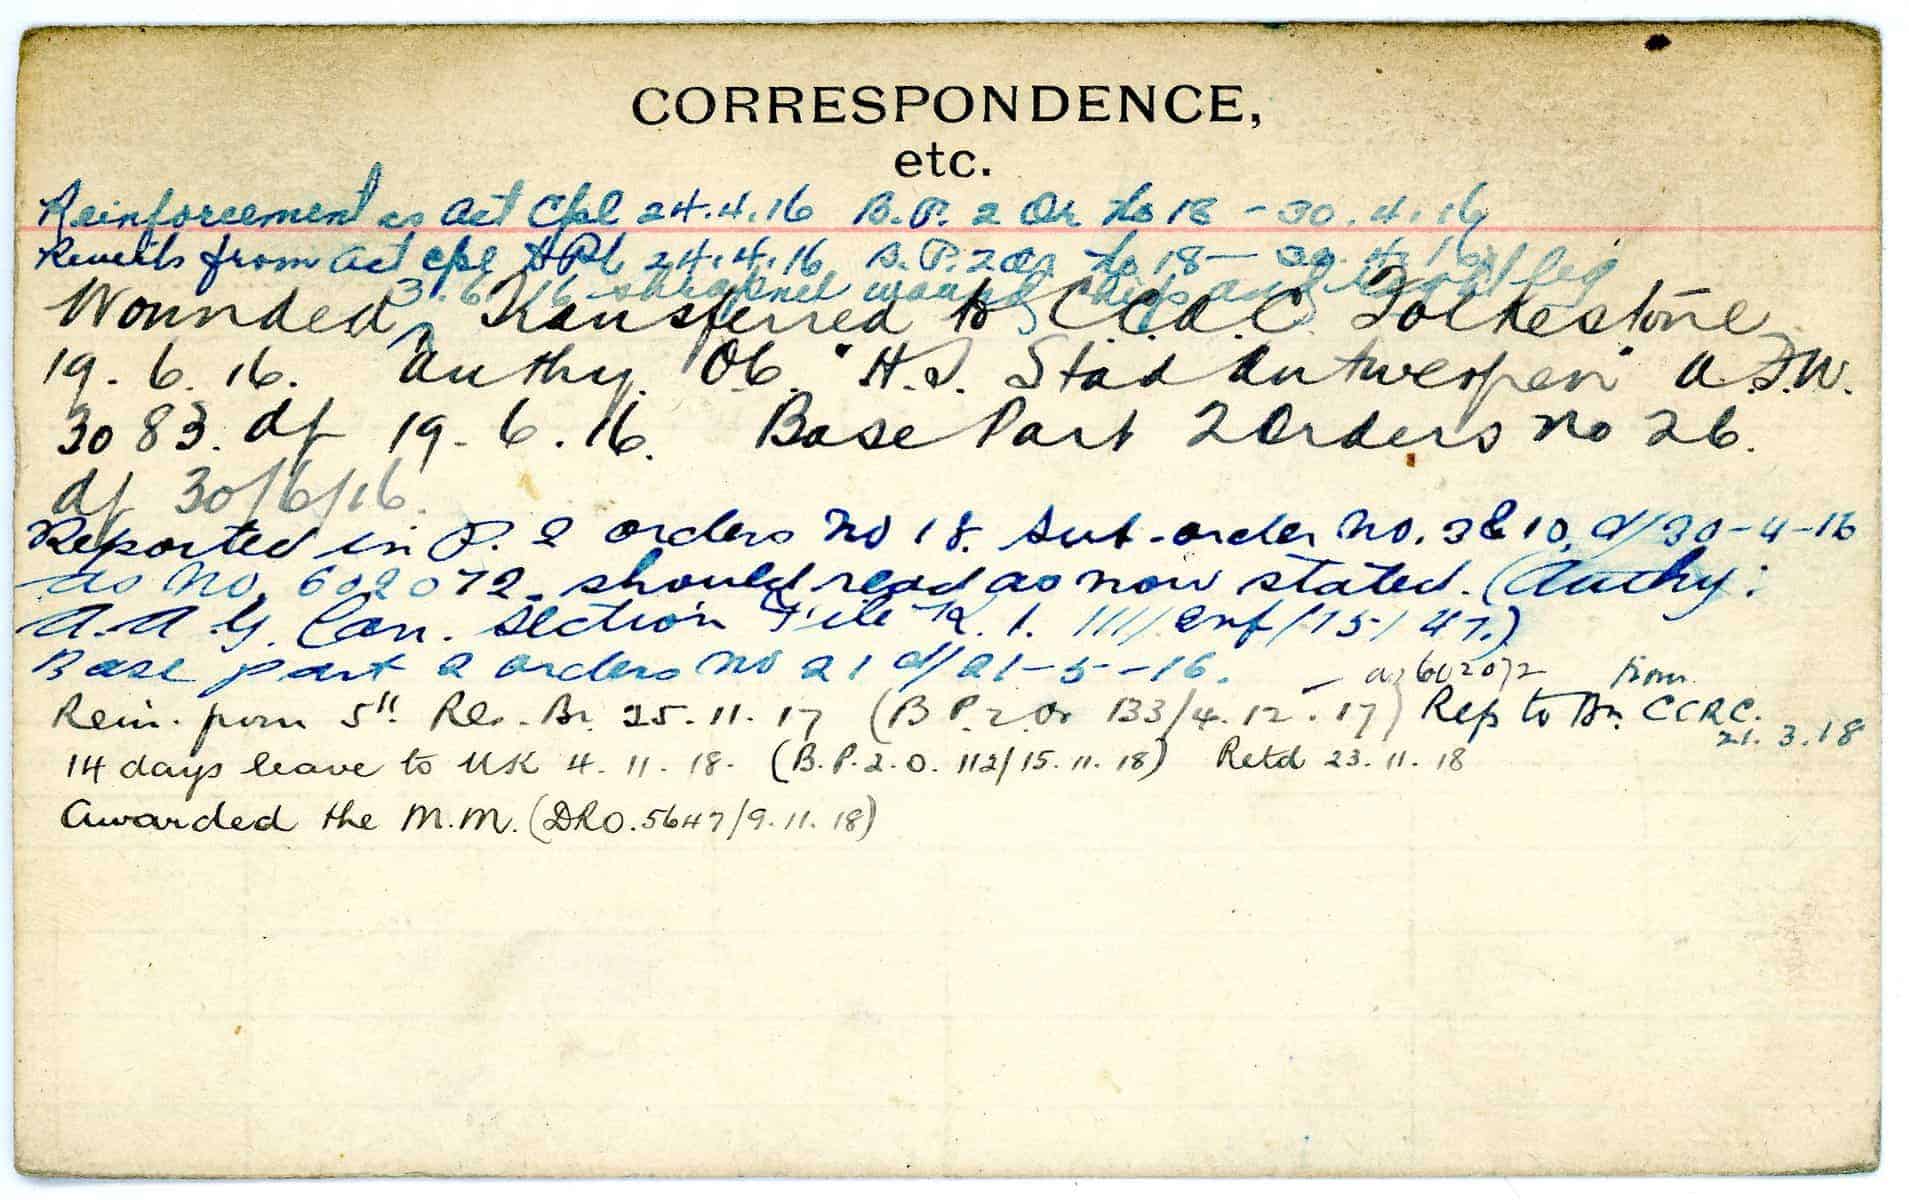 CORRESPONDENCE,
etc.
Reinforcement as Act Cpl 24.4.16 B.P. 2 Or No 18 - 30.4.16
Reverts from Act Cpl to Pt 24.4.16 B.P. 2 Or No 18 - 30.4.16
3.6.16 shrapnel wound and leg
Wounded, Transferred to C.C.A.C. Folkestone
19.6.16. Authy. Ob. "H.S. Stad Antwerpen" A.F.W.
3083. d/ 19.6.16. Base Part 2 Orders No 26.
d/ 30/6/16.
Reported in P. 2 orders No 18. Sub-order No. 3 & 10, d/30-4-16
as No. 602072. should read as now stated. (Authy:
A.A.G. Can. Section File K. 1. 111/ Enf/15/47.)
Base part 2 orders No 21 d/21-5-16. - as 602072
Rein. from 5" Res. Bn. 25.11.17 (B.P.2.Or 133/4.12.17) Rep to Bn. from C.C.R.C.
21.3.18
14 days leave to UK 4.11.18. (B.P.2.O. 112/15.11.18) Retd 23.11.18
Awarded the M.M. (DRO.5647/9.11.18)